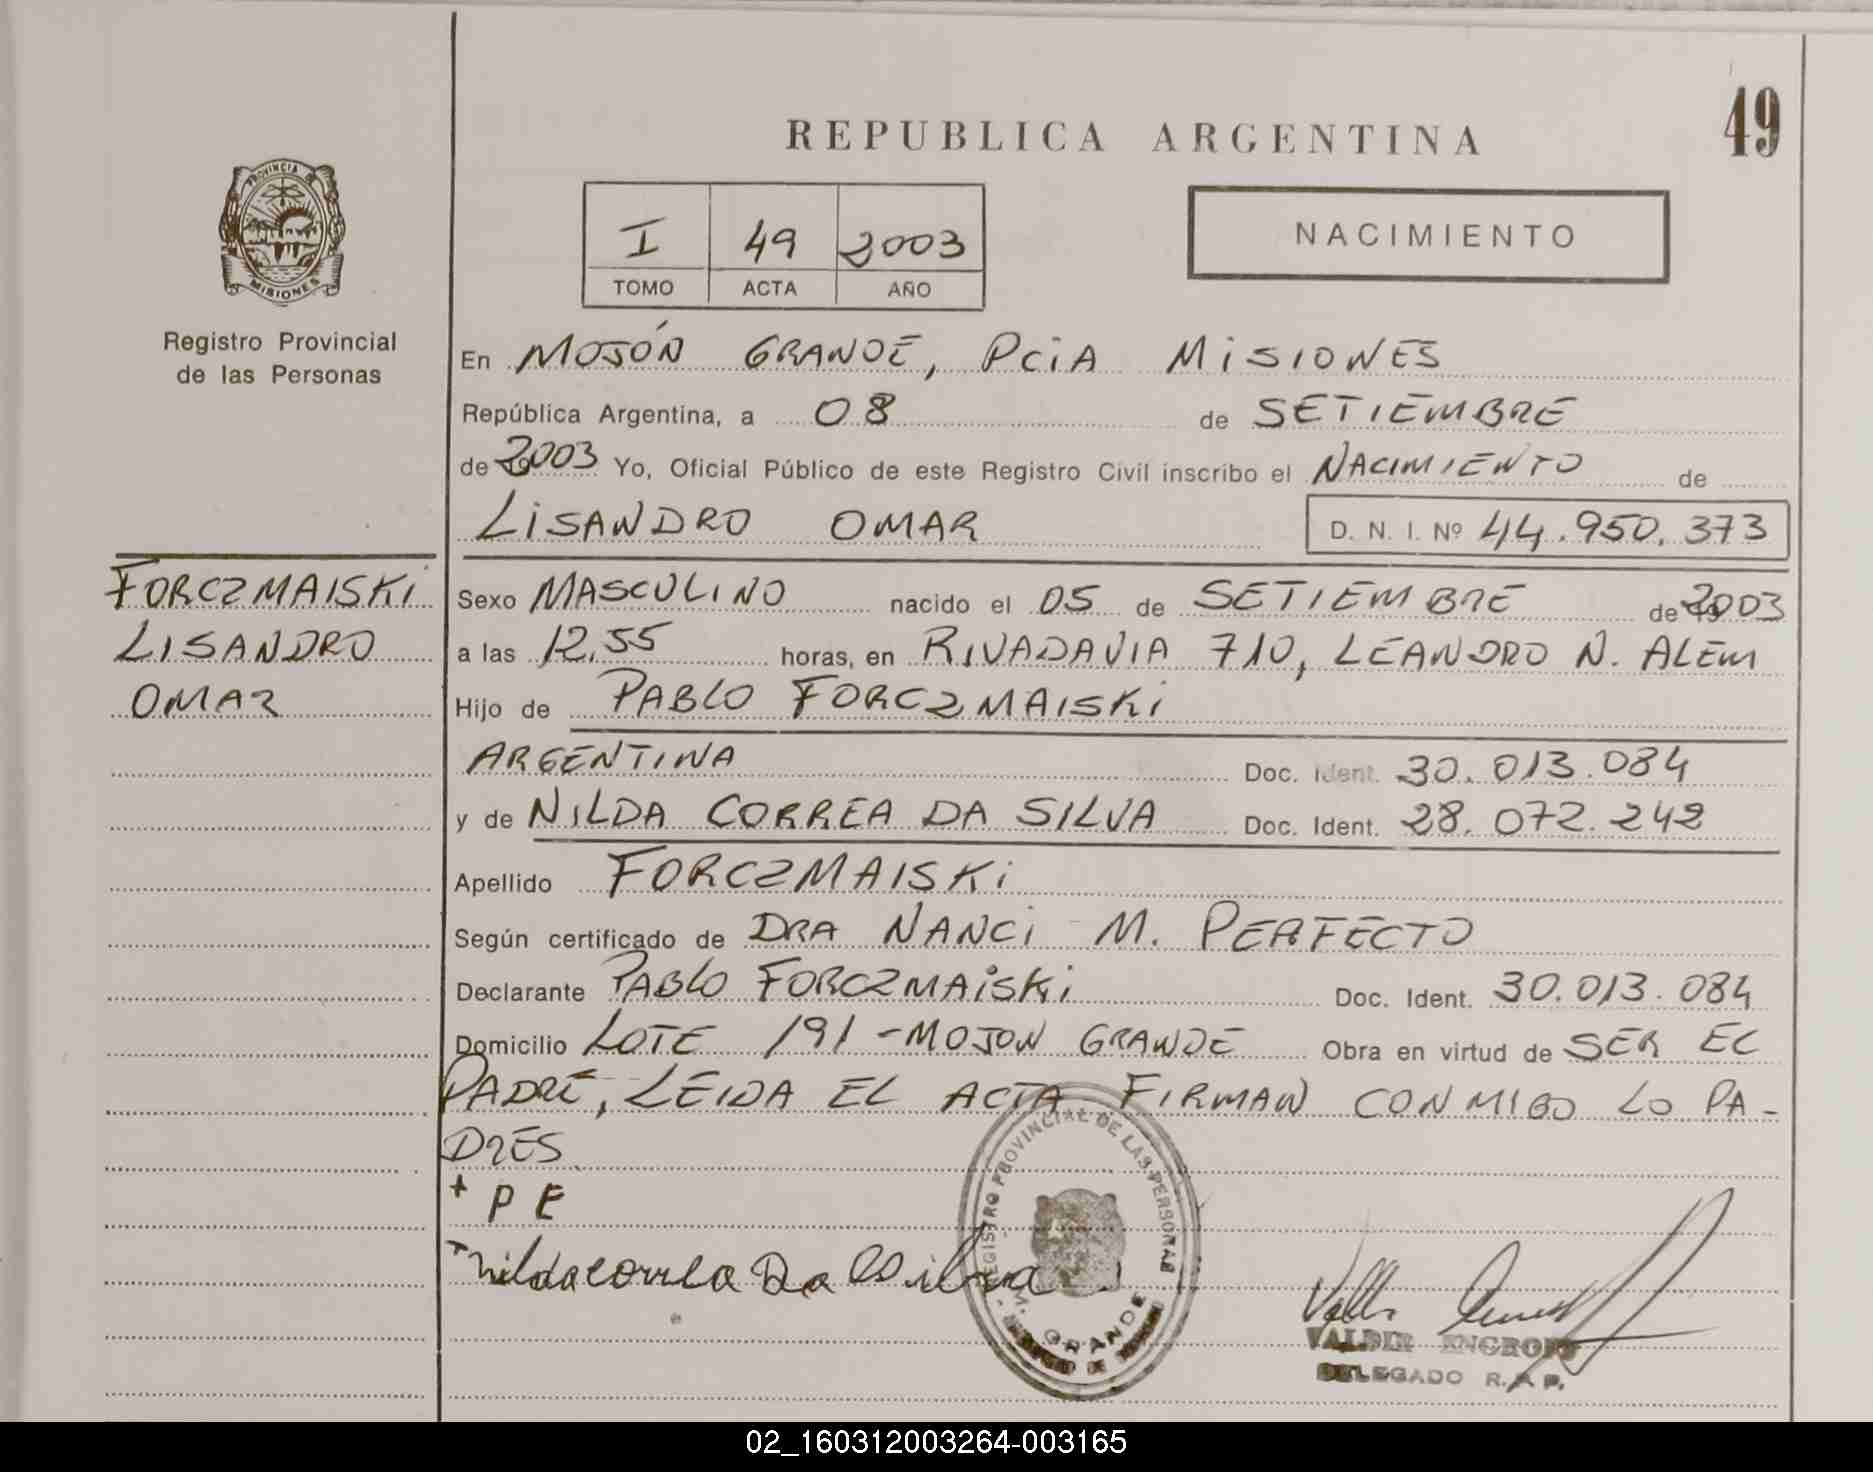 49
REPUBLICA ARGENTINA
PROVINCIA DE
MISIONES
Registro Provincial
de las Personas
I 49 2003
TOMO ACTA AÑO
NACIMIENTO
En MOJÓN GRANDE, PCIA MISIONES
República Argentina, a 08 de SETIEMBRE
de 2003 Yo, Oficial Público de este Registro Civil inscribo el NACIMIENTO de
LISANDRO OMAR D. N. I. Nº 44.950.373
FORCZMAISKI
LISANDRO
OMAR
Sexo MASCULINO nacido el 05 de SETIEMBRE de 2003
a las 12,55 horas, en RIVADAVIA 710, LEANDRO N. ALEM
Hijo de PABLO FORCZMAISKI
ARGENTINA Doc. Ident. 30.013.084
y de NILDA CORREA DA SILVA Doc. Ident. 28.072.242
Apellido FORCZMAISKI
Según certificado de DRA NANCI M. PERFECTO
Declarante PABLO FORCZMAISKI Doc. Ident. 30.013.084
Domicilio LOTE 191 - MOJON GRANDE Obra en virtud de SER EL
PADRE, LEIDA EL ACTA FIRMAN CONMIGO LO PA-
DRES
+ P F
+ nilda correa Da Silva
REGISTRO PROVINCIAL DE LAS PERSONAS
M. GRANDE
VALDIR ENGROFF
DELEGADO R.P.P.
02_160312003264-003165